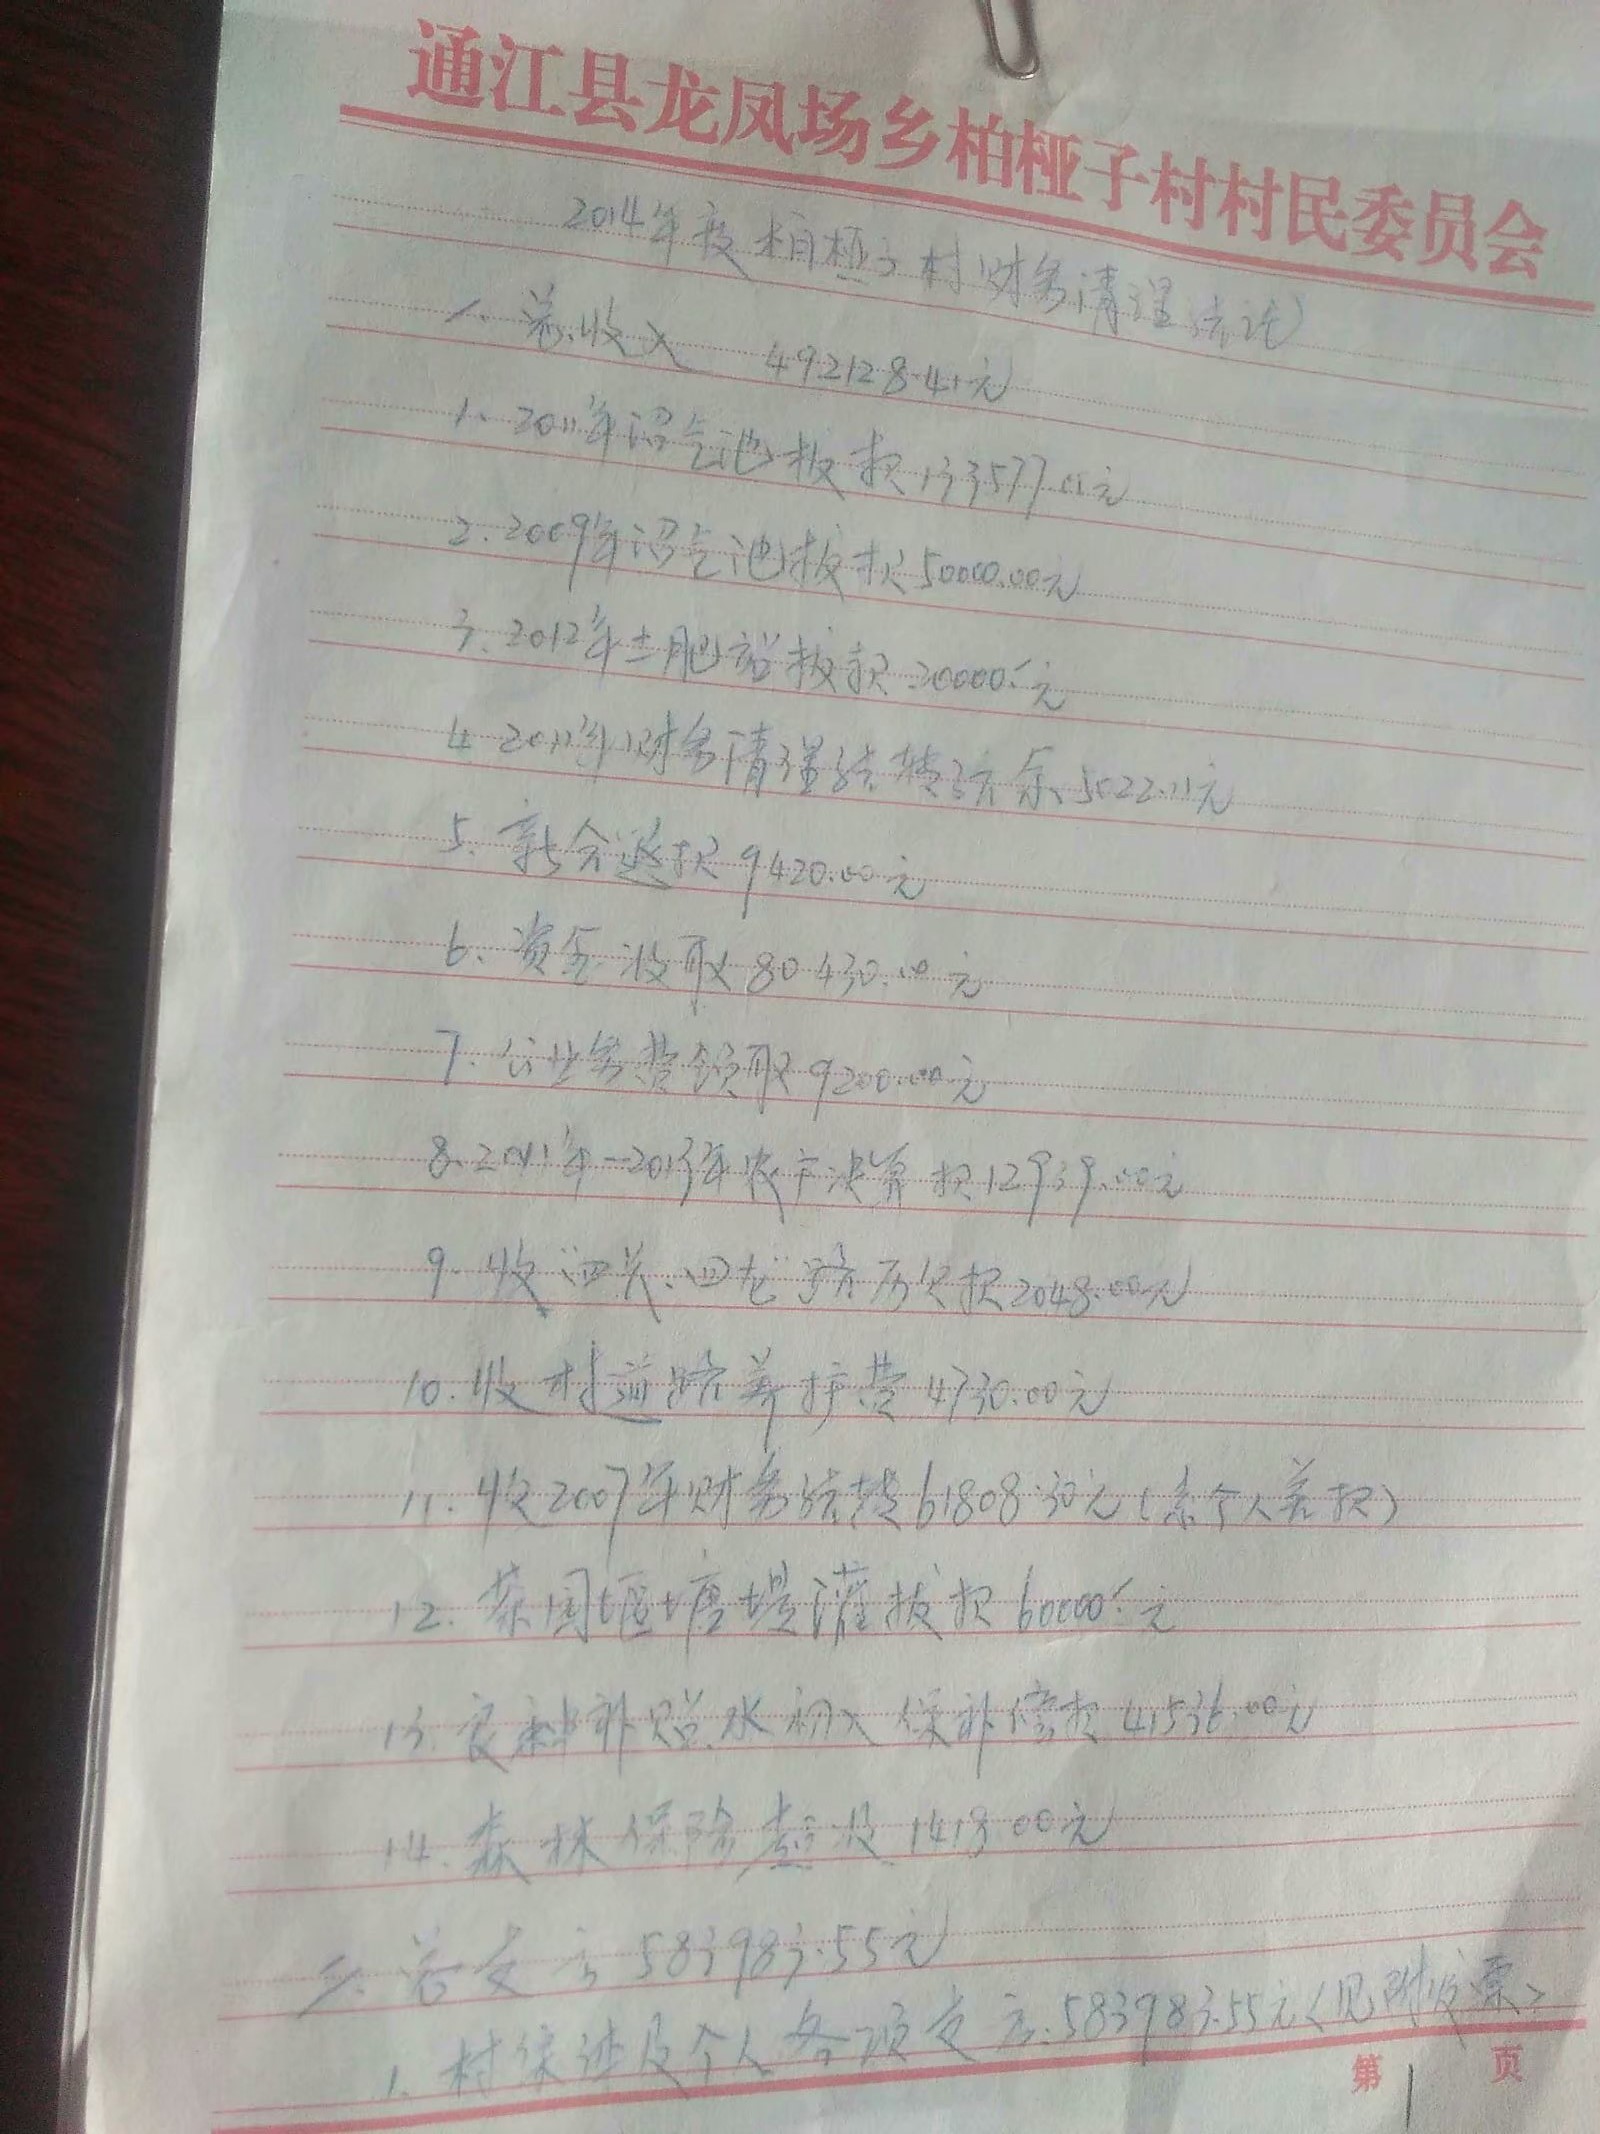 通江县龙凤场乡柏桠子村村民委员会
2014年度柏桠子村财务清理结论
一、总收入 492128.41元
1、2011年沼气池拨款133577.00元
2、2009年沼气池拨款50000.00元
3、2012年土肥站拨款20000.-元
4、2011年财务清理结转结余5022.11元
5、新会返款9420.00元
6、资金收取80430.00元
7、公业务费领取9200.00元
8、2011年-2013年农户决算款12939.00元
9、收"四关、四龙"路历欠款2048.00元
10、收村道路养护费4730.00元
11、收2007年财务结转61808.30元(系个人差款)
12、茶园堰塘堤灌拨款60000.-元
13、良种补贴、水稻入保补偿款41536.00元
14、森林保险 收1418.00元
二、总支出583983.55元
1、村集体及个人各项支出583983.55元(见附发票)
第1页